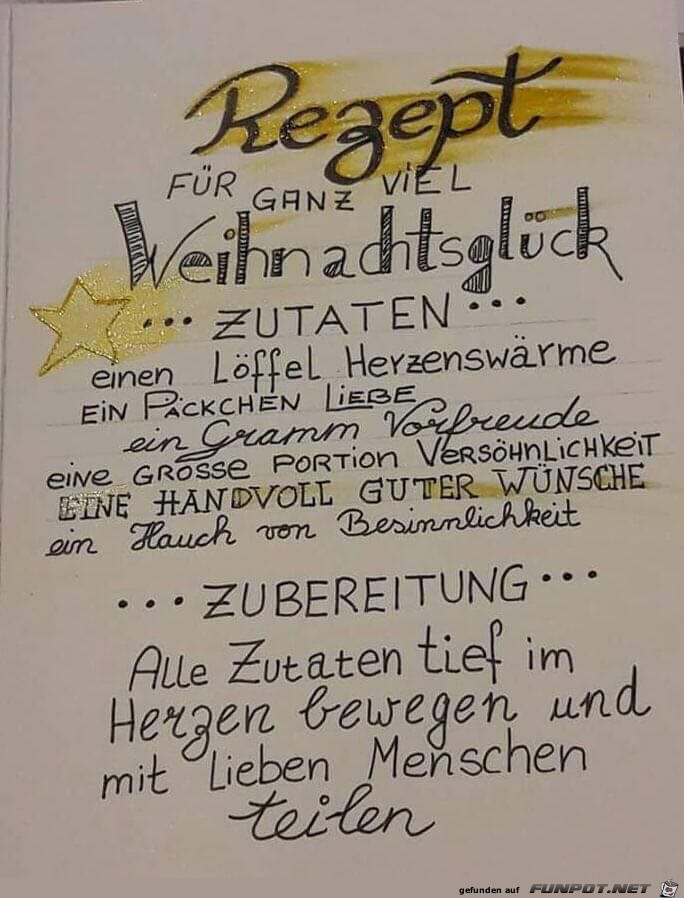 Rezept
FÜR GANZ VIEL
Weihnachtsglück
... ZUTATEN ...
einen Löffel Herzenswärme
EIN PÄCKCHEN LIEBE
ein Gramm Vorfreude
eine GROSSE PORTION VERSÖHNLICHKEIT
EINE HANDVOLL GUTER WÜNSCHE
ein Hauch von Besinnlichkeit
... ZUBEREITUNG ...
Alle Zutaten tief im
Herzen bewegen und
mit lieben Menschen
teilen
gefunden auf FUNPOT.NET